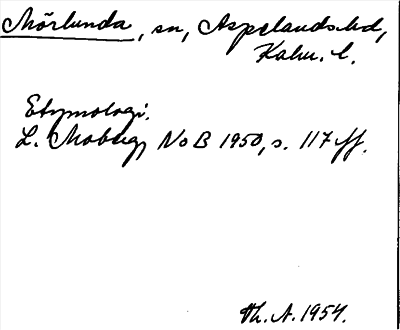 Mörlunda, sn, Aspelands hd,
Kalm. l.
Etymologi.
L. Moberg, NoB 1950, s. 117 ff.
Th. A. 1954.